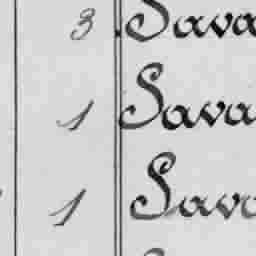 3 Sava
1 Sava
1 Sava